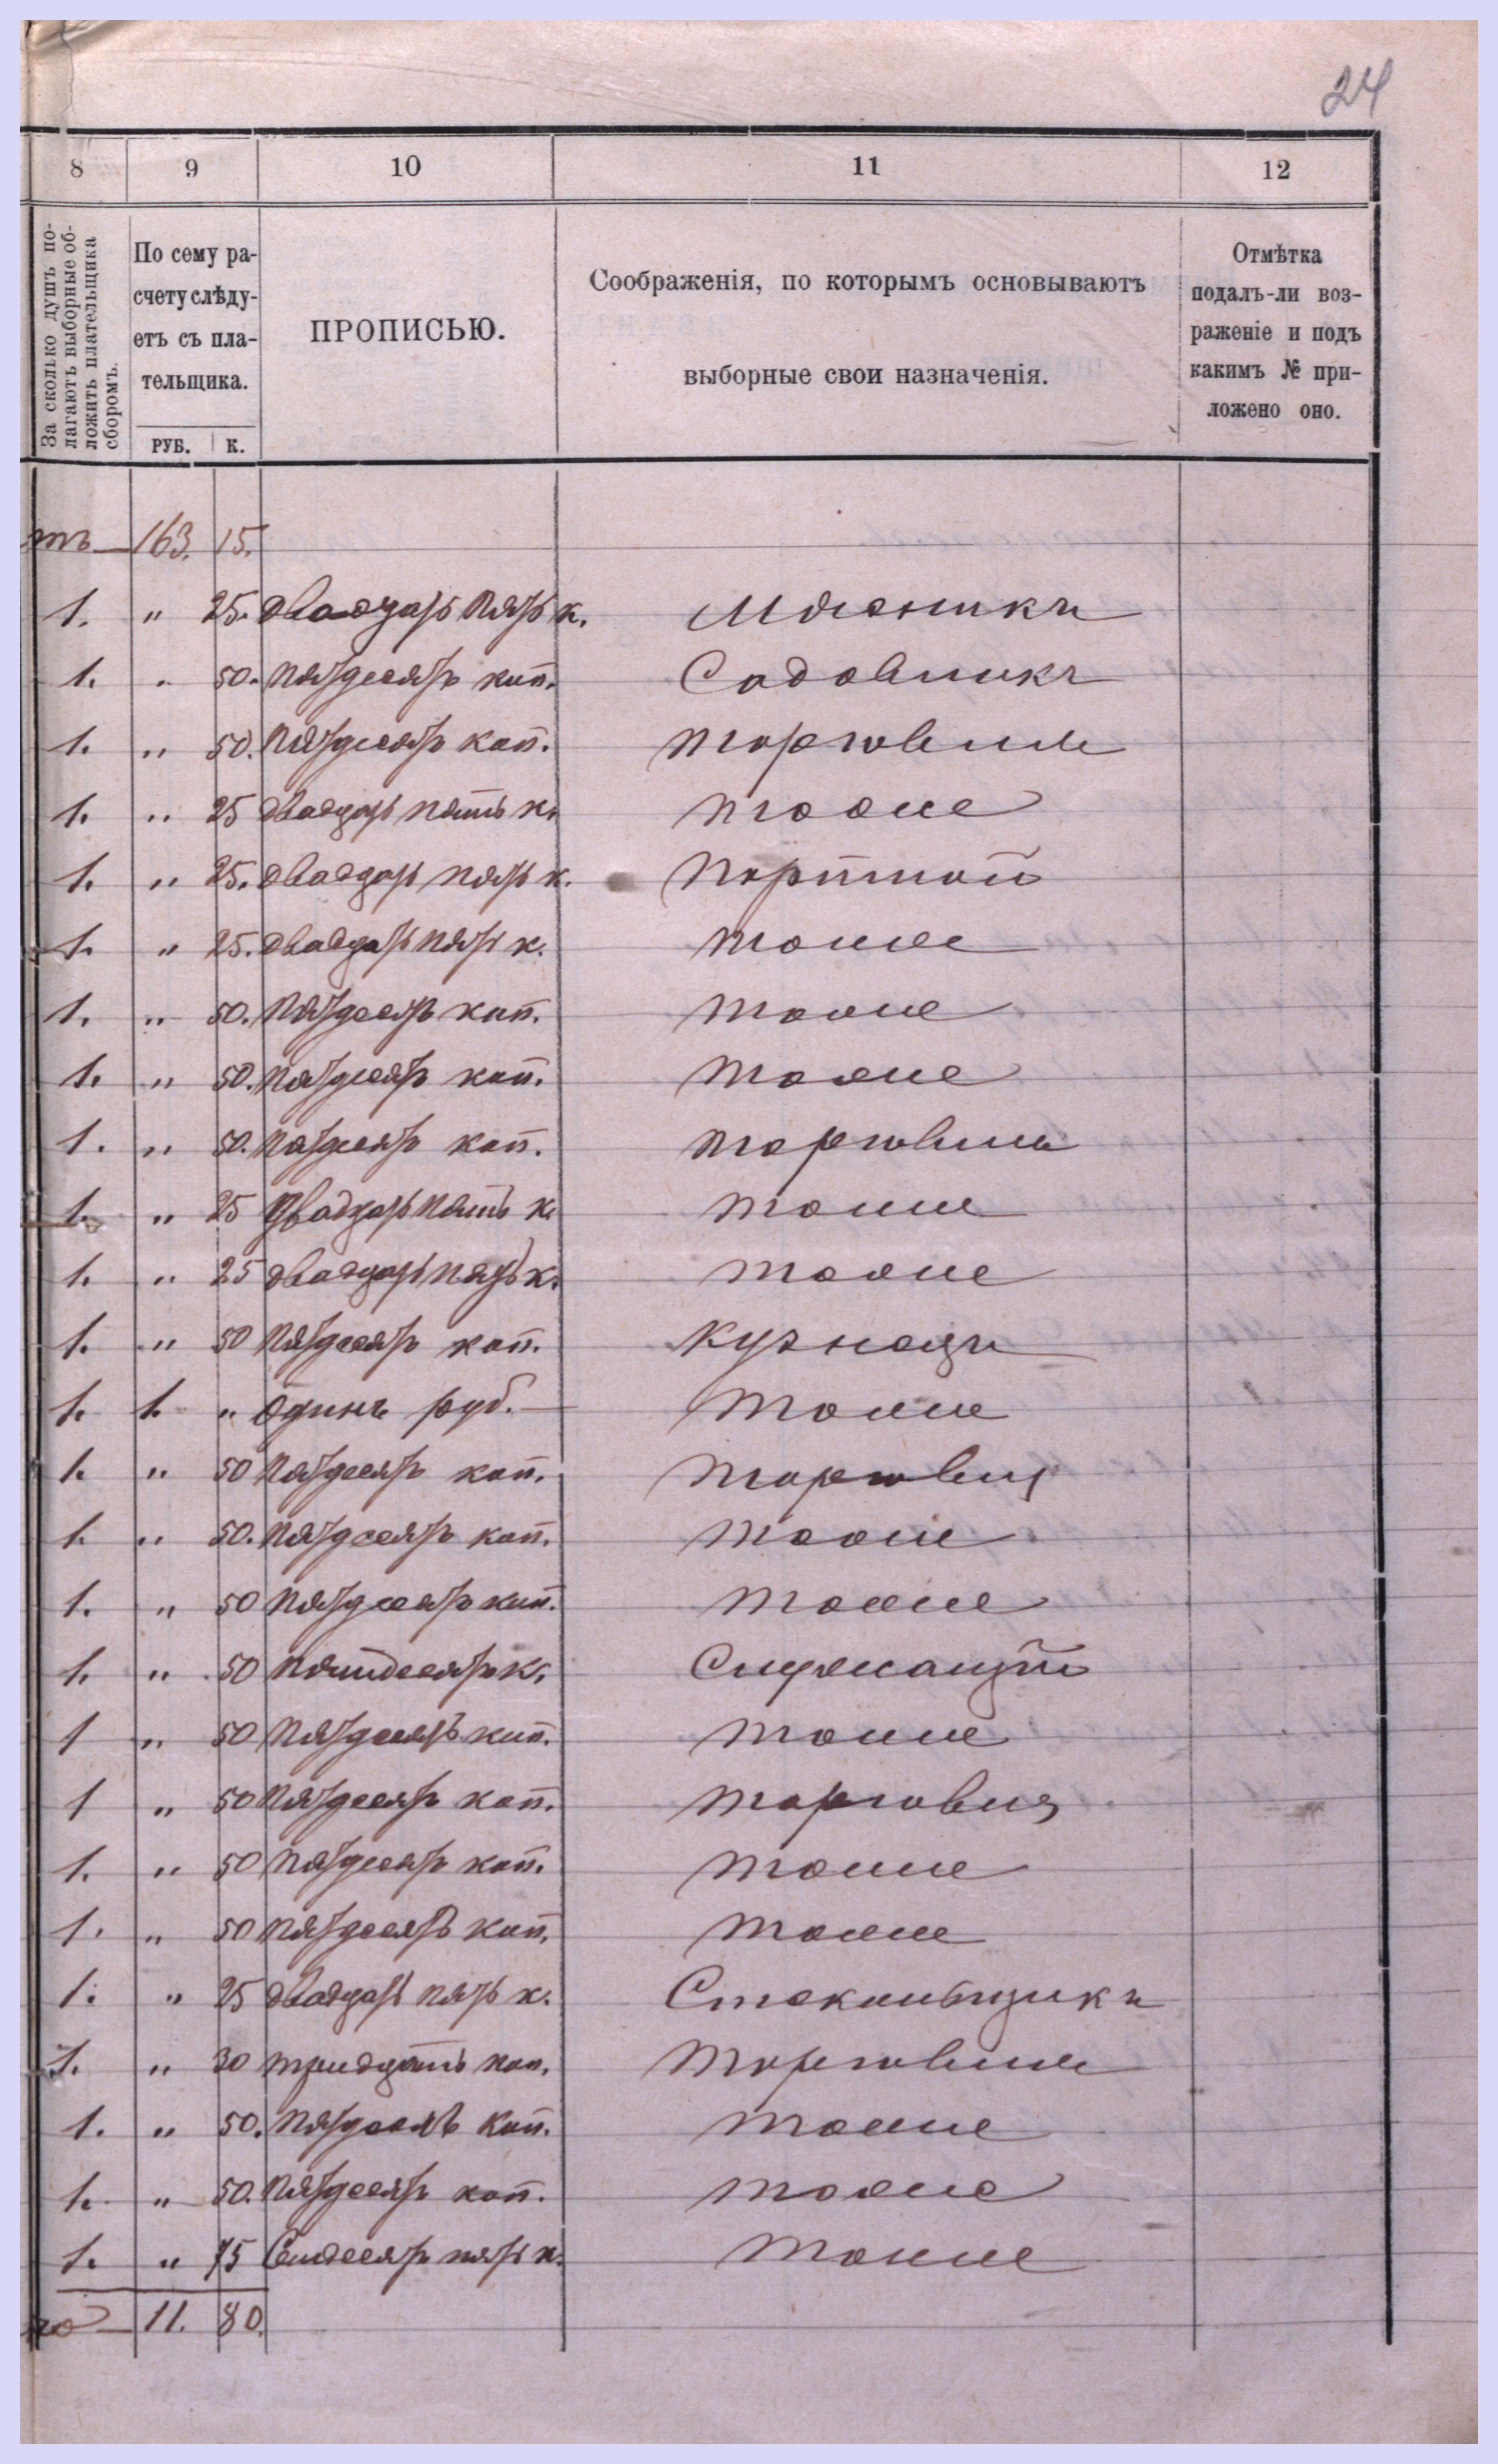 24
8 9 10 11 12
За сколько душъ по-
лагаютъ выборные об-
ложить плательщика
сборомъ.
По сему ра-
счету слѣду-
етъ съ пла-
тельщика.
РУБ. К.
ПРОПИСЬЮ.
Соображенія, по которымъ основываютъ
выборные свои назначенія.
Отмѣтка
подалъ-ли воз-
раженіе и подъ
какимъ № при-
ложено оно.
тъ — 163. 15.
1. " 25. двадцать пять к.
1. " 50. пятдесятъ коп. Садовникъ
1. " 50. пятдесятъ коп. торговли
1. " 25 двадцать пять к. тоже
1. " 25. двадцать пять к. портной
1. " 25. двадцать пять к. тоже
1. " 50. пятдесятъ коп. тоже
1. " 50. пятдесятъ коп. тоже
1. " 50. пятдесятъ коп. торговли
1. " 25 двадцать пять к. тоже
1. " 25 двадцать пять к. тоже
1. " 50 пятдесятъ коп. кузнецъ
1. 1. " одинъ руб. — тоже
1. " 50 пятдесятъ коп. торговля
1. " 50. пятдесятъ коп. тоже
1. " 50 пятдесятъ коп. тоже
1. " 50 пятдесятъ к. Служащій
1 " 50 пятдесятъ коп. тоже
1 " 50 пятдесятъ коп. торговля
1. " 50 пятдесятъ коп. тоже
1. " 50 пятдесятъ коп. тоже
1. " 25 двадцать пять к. Стекольщикъ
1. " 30 тридцать коп. торговли
1. " 50. пятдесятъ коп. тоже
1. " 50. пятдесятъ коп. тоже
1. " 75 Семдесятъ пять к. тоже
го — 11. 80.